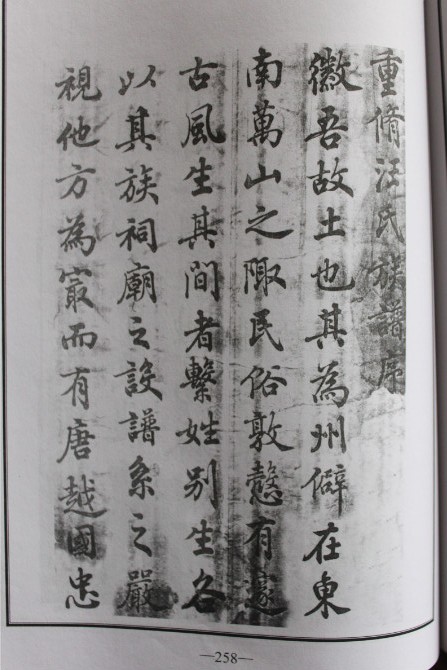 重脩汪氏族譜序
徽吾故土也其為州僻在東
南萬山之陬民俗敦愨有邃
古風生其間者繫姓別生各
以其族祠廟之設譜系之嚴
視他方為㝡而有唐越國忠
—258—